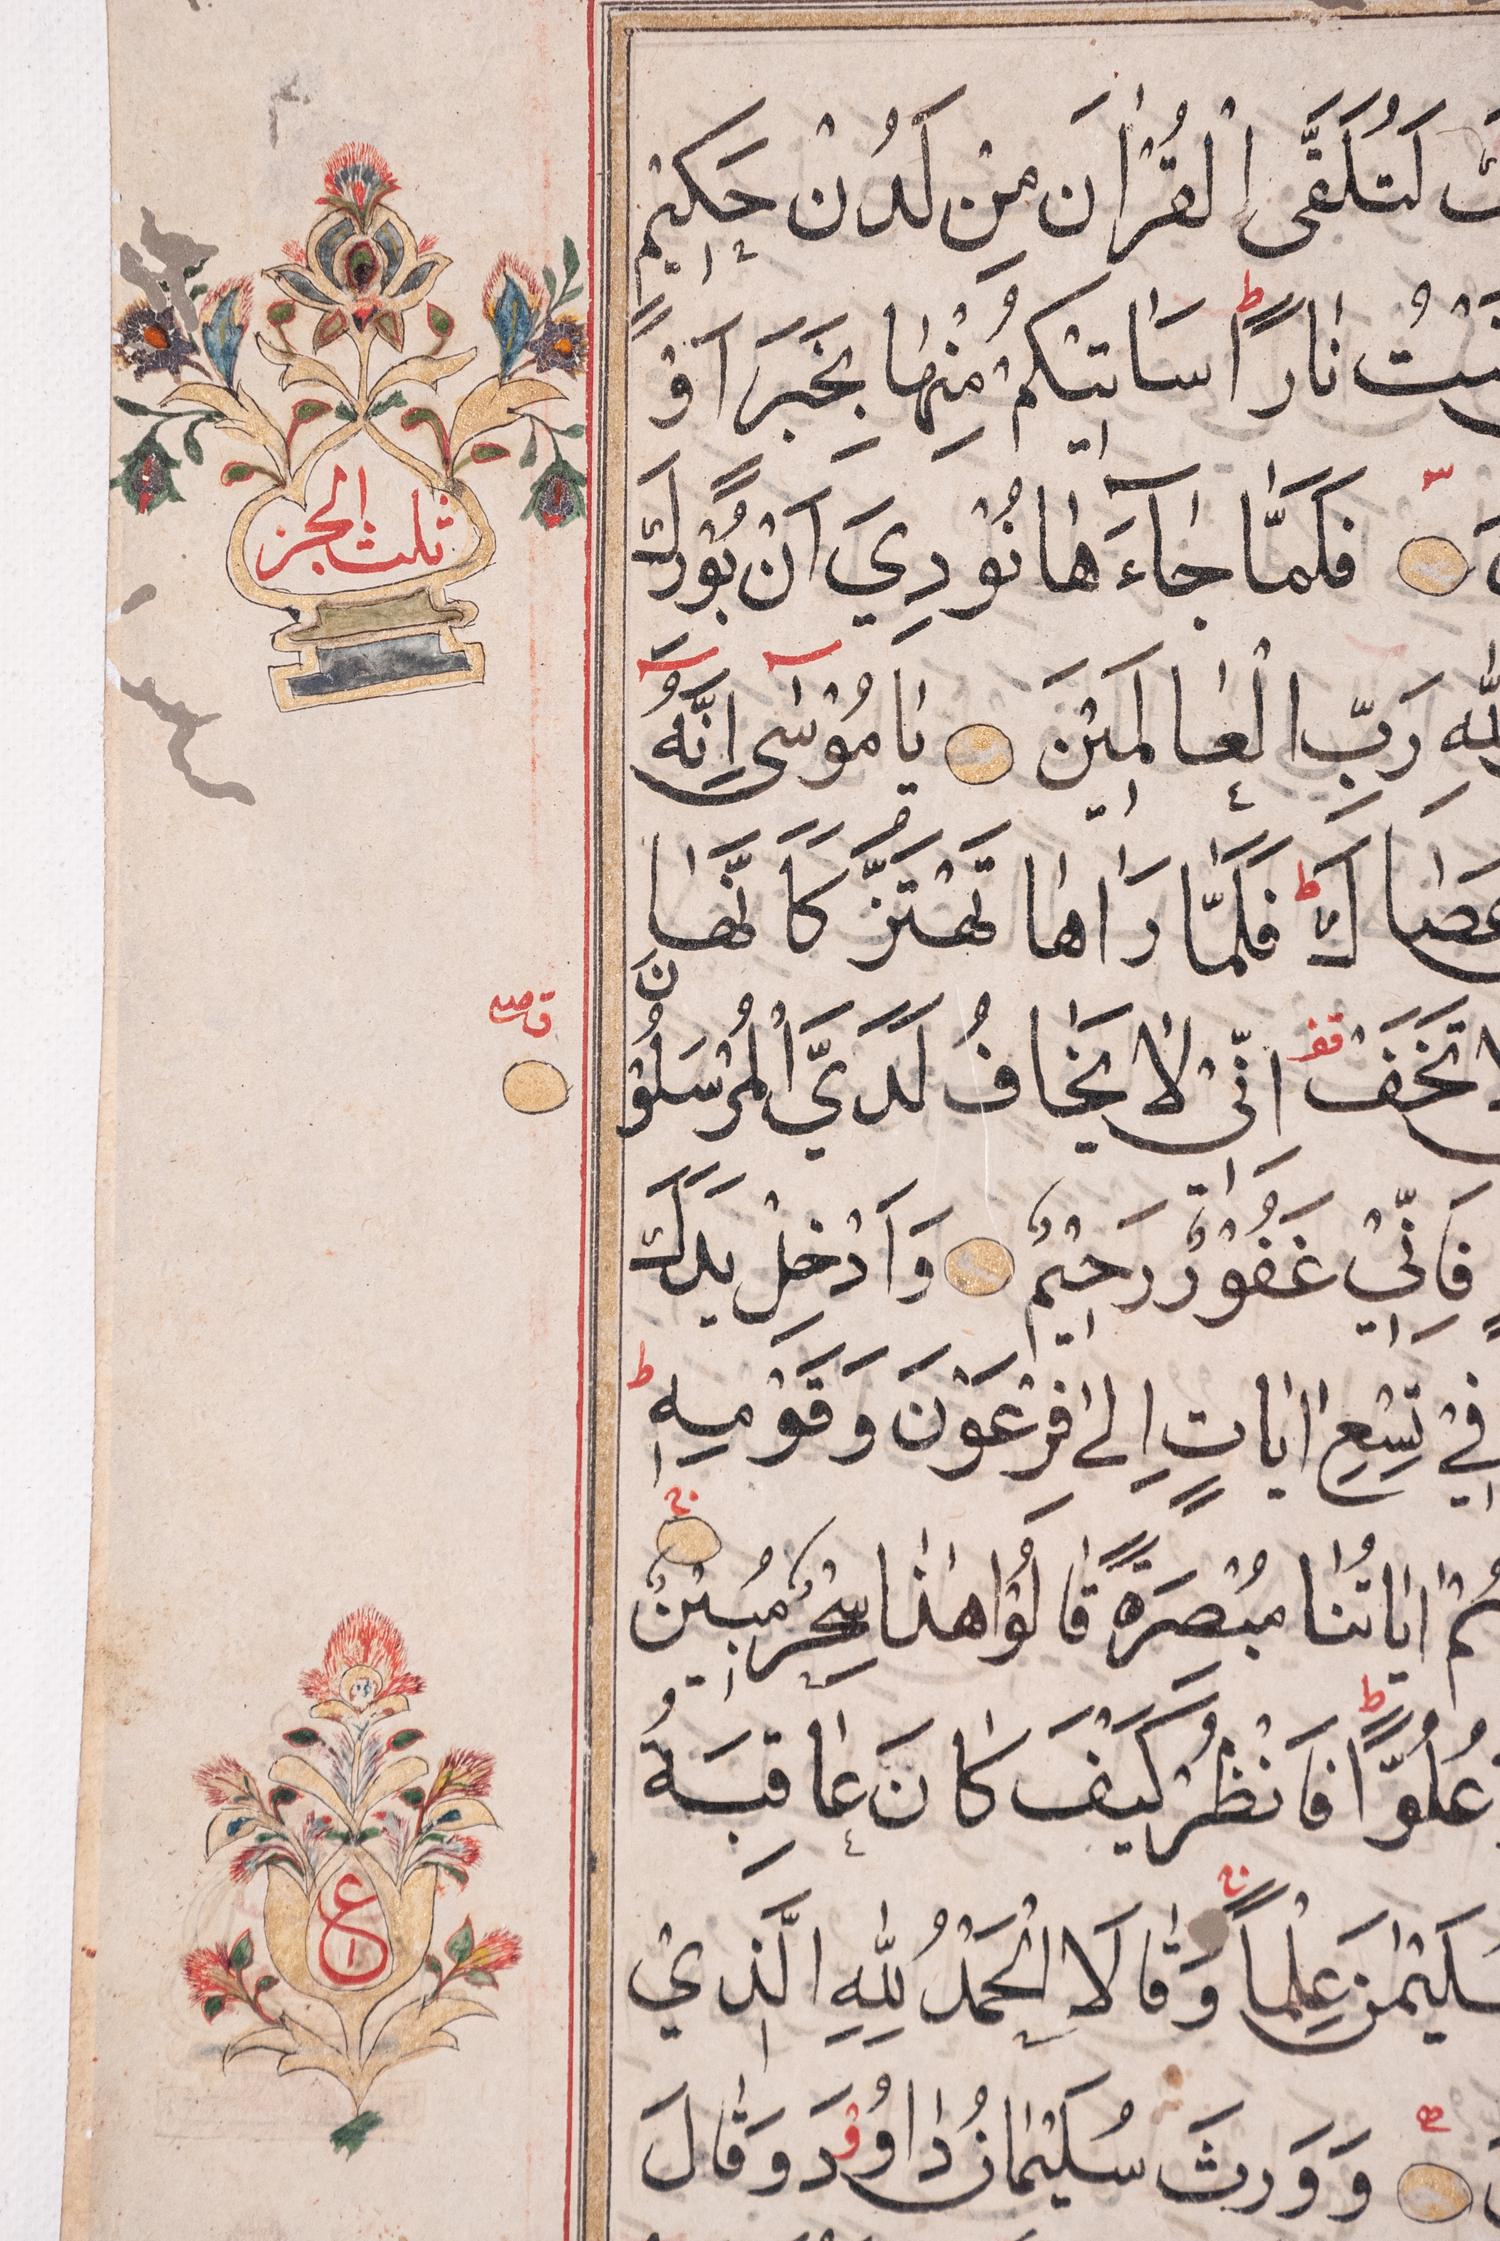 لَتُلَقَّى الْقُرْاٰنَ مِنْ لَدُنْ حَكِيْمٍ
نَارًا سَاٰتِيْكُمْ مِنْهَا بِخَبَرٍ اَوْ
ط
فَلَمَّا جَاۤءَهَا نُوْدِيَ اَنْ بُوْرِكَ
للّٰهِ رَبِّ الْعَالَمِيْنَ يَا مُوْسٰى اِنَّهُ
عَصَاكَ فَلَمَّا رَاٰهَا تَهْتَزُّ كَاَنَّهَا
ط
لَا تَخَفْ اِنِّيْ لَا يَخَافُ لَدَيَّ الْمُرْسَلُوْنَ
قف
فَاِنِّيْ غَفُوْرٌ رَحِيْمٌ وَاَدْخِلْ يَدَكَ
فِيْ تِسْعِ اٰيَاتٍ اِلٰى فِرْعَوْنَ وَقَوْمِهٖ
ط
هُمْ اٰيَاتُنَا مُبْصِرَةً قَالُوْا هٰذَا سِحْرٌ مُبِيْنٌ
عُلُوًّا فَانْظُرْ كَيْفَ كَانَ عَاقِبَةُ
ط
سُلَيْمٰنَ عِلْمًا وَقَالَا الْحَمْدُ لِلّٰهِ الَّذِيْ
وَوَرِثَ سُلَيْمَانُ دَاوُدَ وَقَالَ
ثلث الجز
ع